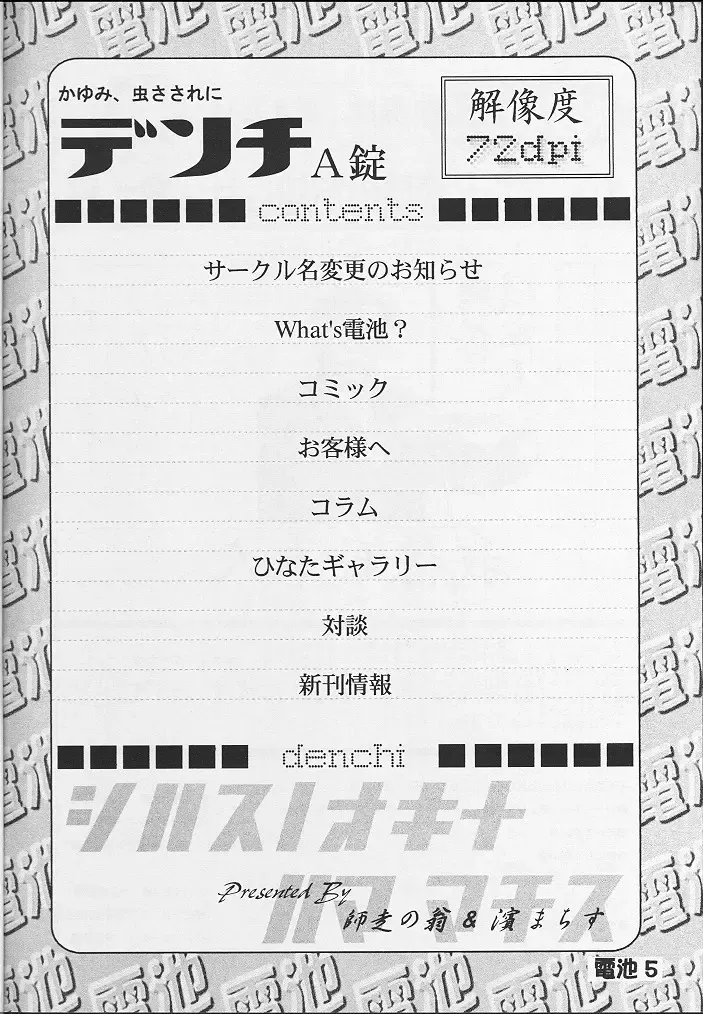 かゆみ、虫さされに
デンチA錠
解像度
72dpi
contents
サークル名変更のお知らせ
What's電池？
コミック
お客様へ
コラム
ひなたギャラリー
対談
新刊情報
denchi
シハスノオキナ
Presented By
ハママチス
師走の翁 & 濱まちす
電池 5